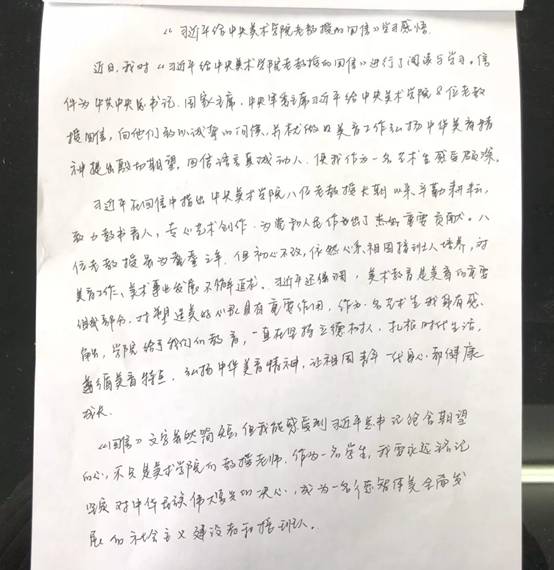 《习近平给中央美术学院老教授的回信》学习感悟
近日,我对《习近平给中央美术学院老教授的回信》进行了阅读与学习。信
件为中共中央总书记、国家主席、中央军委主席习近平给中央美术学院8位老教
授回信,向他们致以诚挚的问候,并就做好美育工作弘扬中华美育精
神提出殷切期望。回信语言真诚动人,使我作为一名艺术生感受颇深。
习近平在回信中指出中央美术学院八位老教授长期以来辛勤耕耘,
致力教书育人,专心艺术创作,为党和人民作出了重要贡献。八
位老教授虽为耄耋之年,但初心不改,依然心系祖国接班人培养,对
美育工作、美术事业发展不懈追求。习近平还强调,美术教育是美育的重要
组成部分,对塑造美好心灵具有重要作用,作为一名艺术生我颇有感
触,学院给予我们的教育,一直在坚持立德树人,扎根时代生活,
遵循美育特点,弘扬中华美育精神,让祖国青年一代身心都健康
成长。
《回信》文字虽然简短,但我能感受到习近平总书记饱含期望
的心,不只是美术学院的教授老师,作为一名学生,我要永远铭记
坚定对中华民族伟大复兴的决心,成为一名德智体美全面发
展的社会主义建设者和接班人。